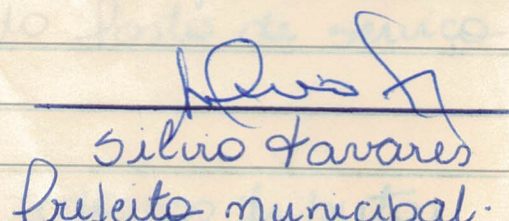 Silvio Tavares
Prefeito municipal.